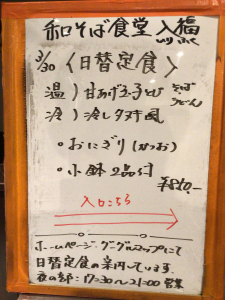 和そば食堂 入福
いりふく
3/30 〈日替定食〉
温)甘あげ玉子とじ そば うどん
冷)冷したぬき風
・おにぎり(かつお)
・小鉢2品付
¥810.-
入口こちら
ホームページ・グーグルマップにて
日替定食の案内しています
夜の部:17:30〜21:00 営業